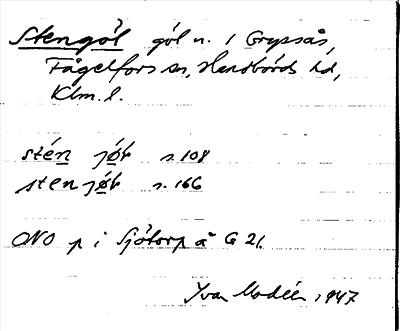 Stengöl göl n. i Grypsås,
Fågelfors sn, Handbörds hd,
Klm. l.
stén jøḷ s. 108
sten jøḷ s. 166
ONO p i Sjötorp å G 21.
Yvar Modéer, 1947